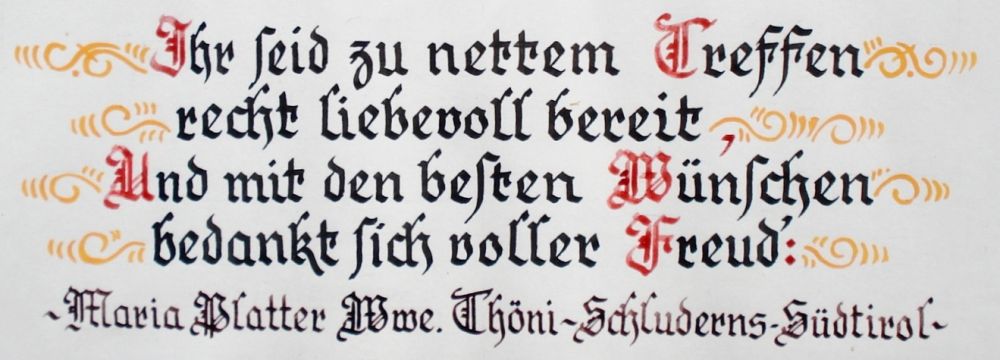 Ihr seid zu nettem Treffen
recht liebevoll bereit,
Und mit den besten Wünschen
bedankt sich voller Freud':
~Maria Platter Wwe. Thöni~Schluderns-Südtirol~